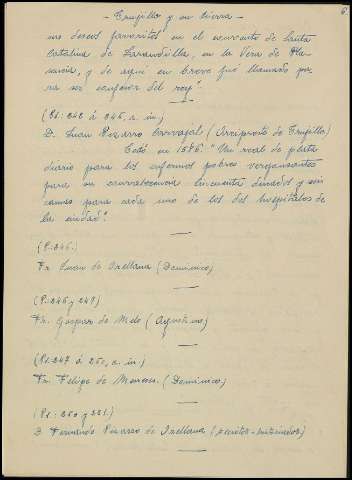 6
- Trujillo y su tierra -
uno desus favoritos en el convento de Santa
Catalina de Larandilla, en la Vera de Pla-
sencia, y de aquí en breve fué llamado pa-
ra ser confesor del rey".
(Ps. 242 á 246, a. in.)
D. Juan Pizarro Carvajal (Arcipreste de Trujillo)
Dotó en 1576. "Un real de plata
diario para los enfermos pobres vergonzantes
para su convalecencia cincuenta ducados y
camas para cada uno de los dos hospitales de
la ciudad".
(P. 246.)
Fr. Juan de Orellana (Dominico)
(P. 246 y 247)
Fr. Gaspar de Melo (Agustino)
(Ps. 247 á 250, a. in.)
Fr. Felipe de Meneses. (Dominico)
(Ps.: 250 y 251.)
D. Fernando Pizarro de Orellana (escritor-historiador)